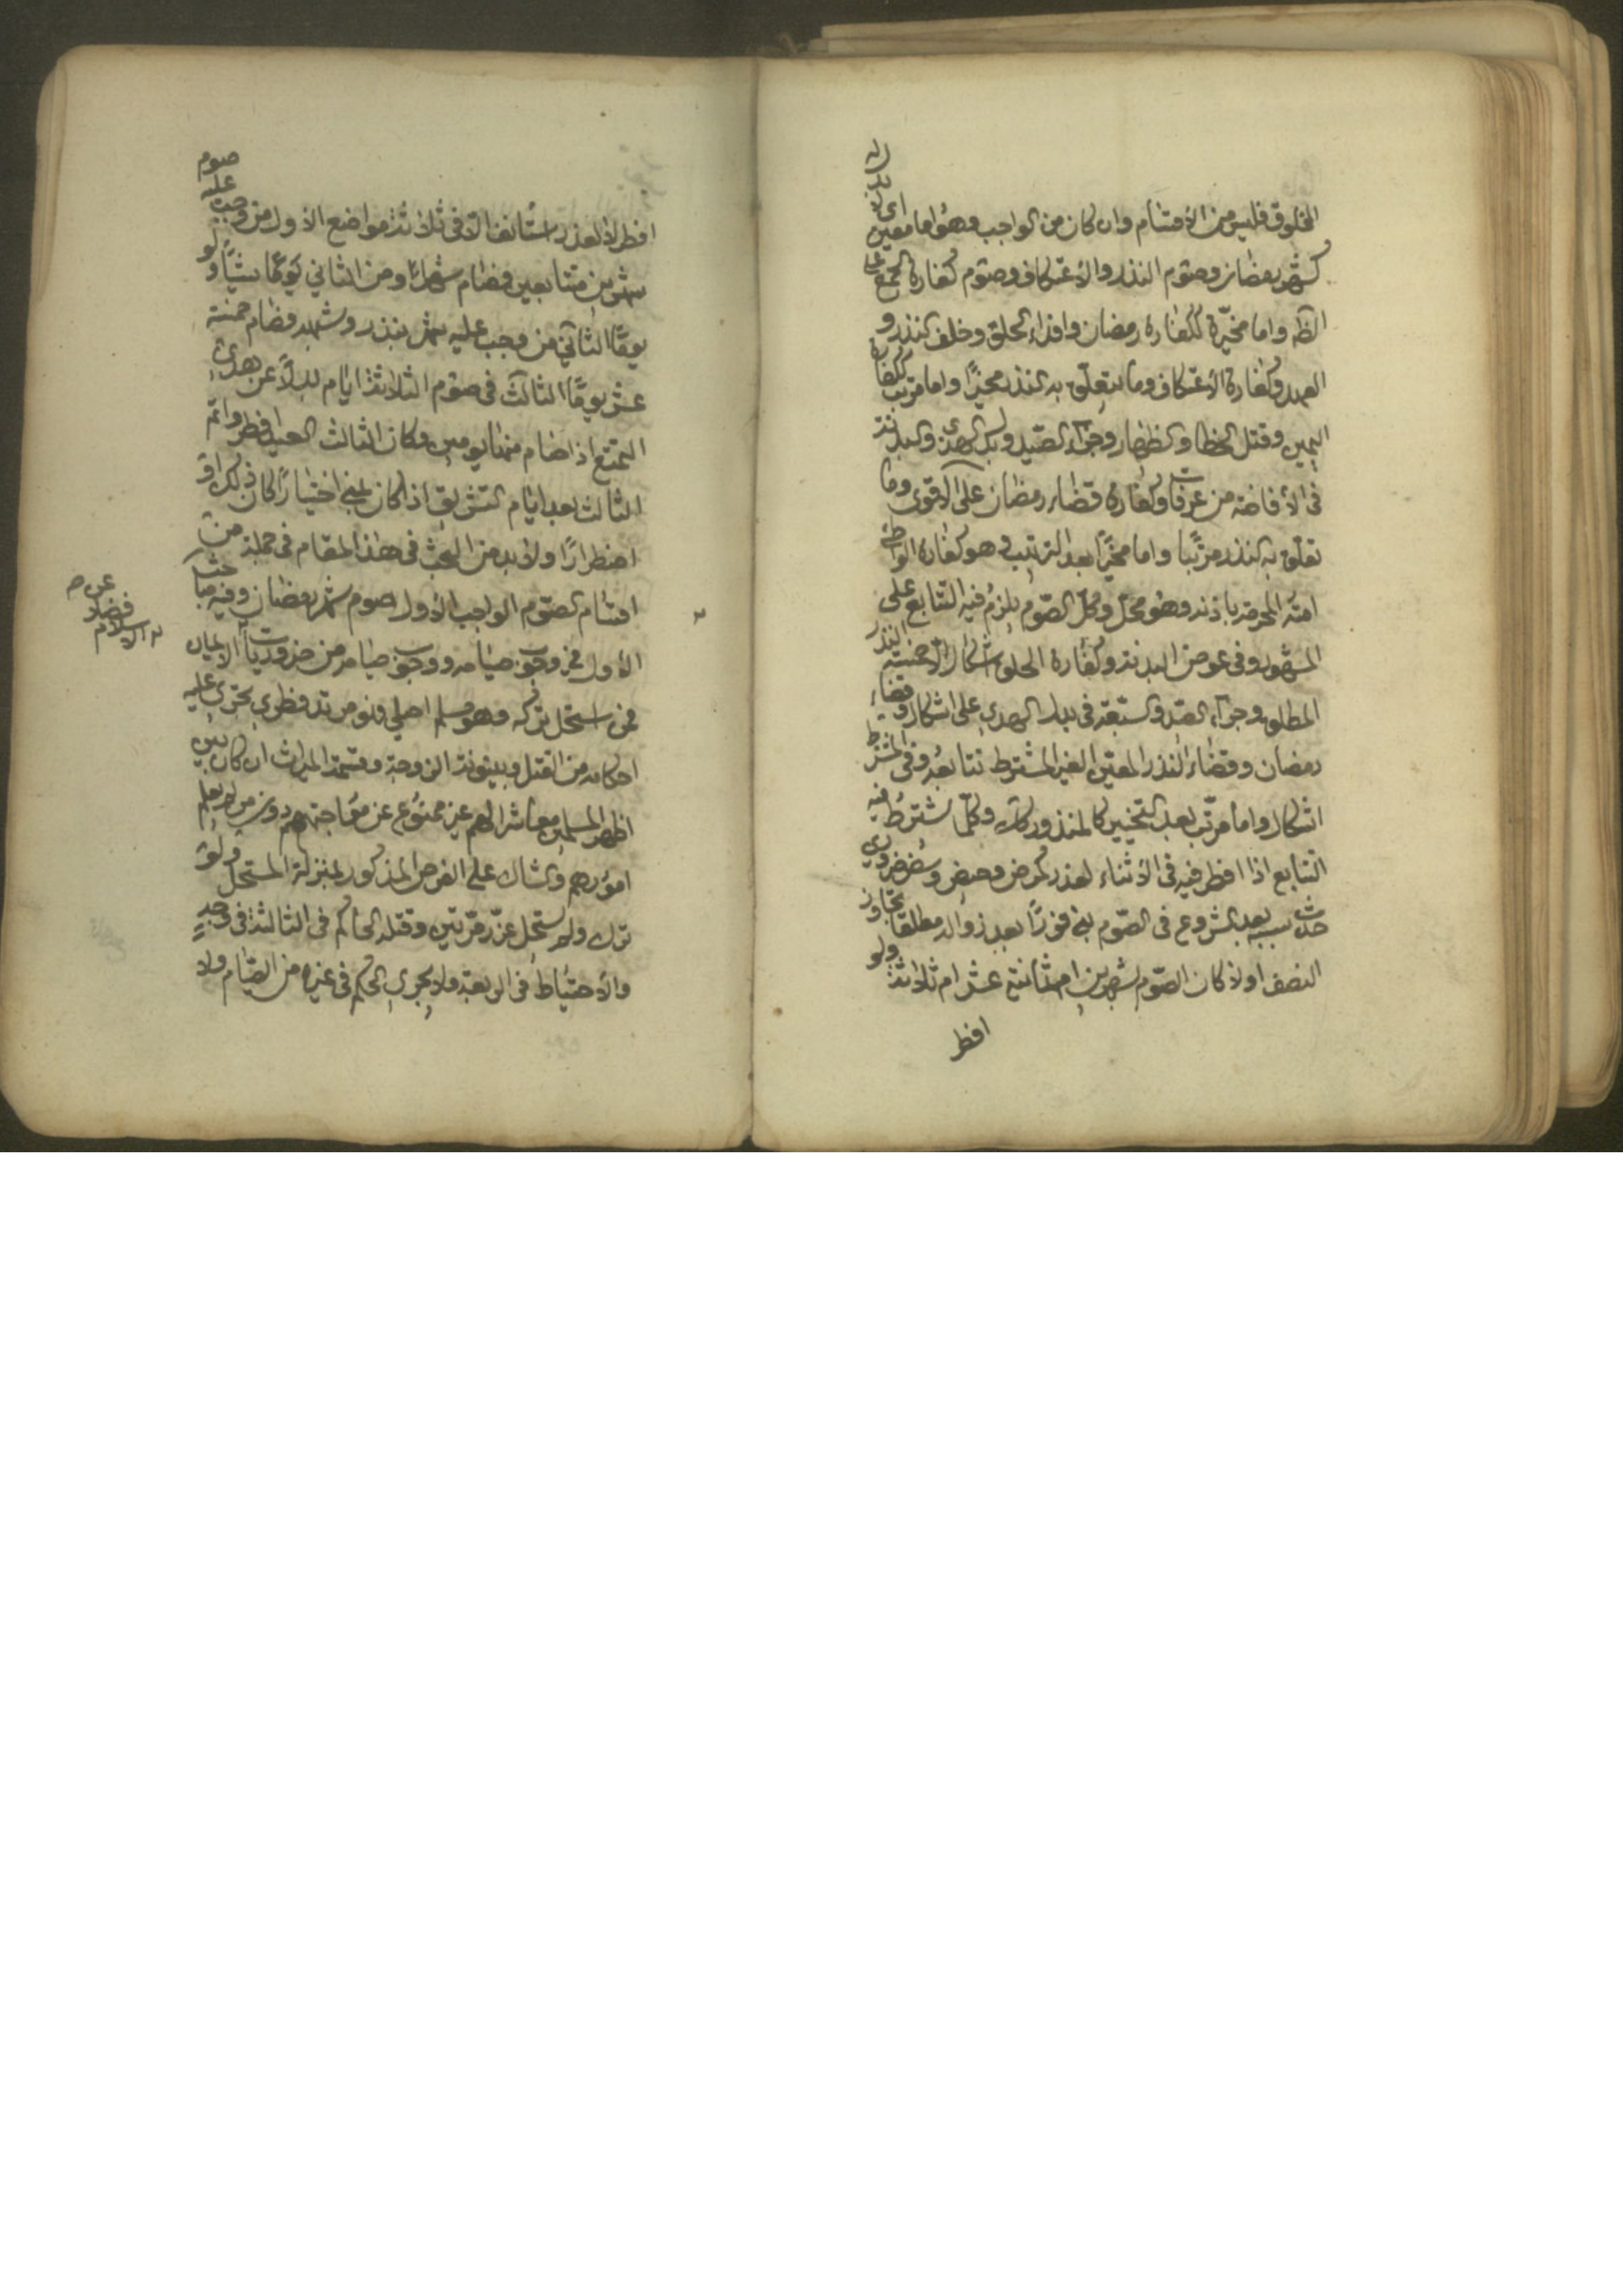 المخلوق فليس من الأقسام وان كان من الواجب وهو اما معين
كشهر رمضان وصوم النذر والاعتكاف وصوم كفارة الجمع على
الظ واما مخيرة ككفارة رمضان وافداء الحلق وخلف النذر و
العهد وكفارة الاعتكاف وما يتعلق به النذر مخيرًا واما مرتب ككفارة
اليمين وقتل الخطا والظهار وجزاء الصيد وبدل الهدى والبدنة
في الأفاضة من عرفات وكفارة قضاء رمضان على الاقوى وما
تعلق به النذر مرتبا واما مخيرًا بعد الترتيب وهو كفارة الواطئ
امته المحرمة باذنه وهو محل وكل الصوم يلزم فيه التتابع على
المشهور وفي عوض البدنة وكفارة الحلق اشكال الاجنبية النذر
المطلق وجزاء الصيد والسبعة في بدل الهدي على اشكال وقضاء
رمضان وقضاء النذر المعين الغير المشترط تتابعه وفي المشترط
اشكال واما مرتب بعد التخيير كالمنذور كك وكلما يشترط فيه
التتابع اذا افطر فيه في الأثناء لعذر كمرض وحيض وسفر ضروري
حدث سببه بعد الشروع في الصوم بنى فورًا بعد زواله مطلقا تجاوز
النصف اولا كان الصوم شهرين ام ثمانية عشر ام ثلاثة ولو
افطر
افطر لا لعذر استأنف الا في ثلاثة مواضع الاول من وجب عليه صوم
شهرين متتابعين فصام شهرًا ومن الثاني يومًا شيئًا ولو
يومًا الثاني من وجب عليه شهر بنذر وشبهه فصام خمسة
عشر يومًا الثالث في صوم الثلاثة ايام بدلًا عن هدي
التمتع اذا صام منها يومين وكان الثالث العيد افطر واتم
الثالث بعد ايام التشريق اذا كان بمنى اختيارًا كان ذلك او
اضطرارًا ولا بد من البحث في هذا المقام في جملة من
اقسام الصوم الواجب الاول صوم شهر رمضان وفيه مباحث
الأول في وجوب صيامه ووجوب صيامه من ضروريات الايمان
عن
فضلا
الاسلام
فمن استحل تركه وهو مسلم اصلي فهو مرتد فطري تجري عليه
احكامه من القتل وبينونة الزوجة وقسمة الميراث ان كان بين
اظهر المسلمين معاشرا لهم غير ممنوع عن مواجهتهم دون من لم يعلم
امورهم والشاك على الفرض المذكور بمنزلة المستحل ولو
ترك ولم يستحل عزر مرتين وقتله الحاكم في الثالثة في وجه
والأحتياط في الرابعة ولا يجري الحكم في غيره من الصيام ولا